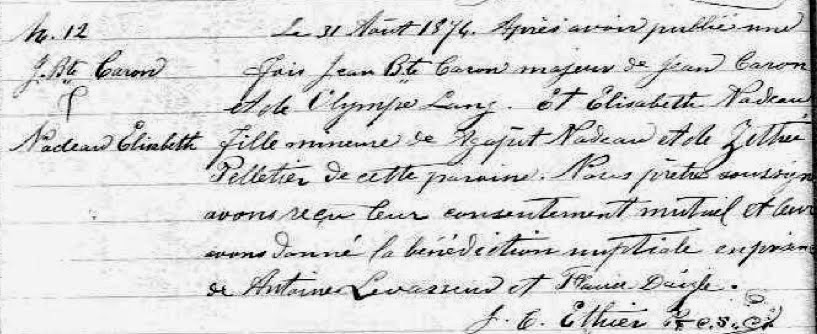 M. 12
J. Bte Caron
&
Nadeau Elisabeth
Le 31 Août 1874. Après avoir publié une
fois Jean Bte Caron majeur de Jean Caron
et de Olympe Lang. Et Elisabeth Nadeau
fille mineure de Agapit Nadeau et de Zithée
Pelletier de cette paroisse. Nous prêtre soussign
avons reçu leur consentement mutuel et leur
avons donné la bénédiction nuptiale en présen
de Antoine Levasseur et Daigle.
J. E. Ethier